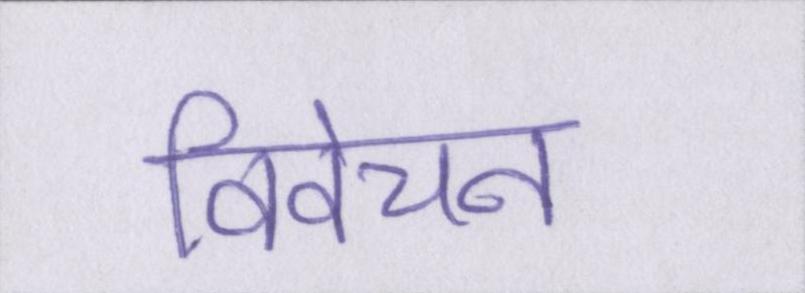 विवेचन